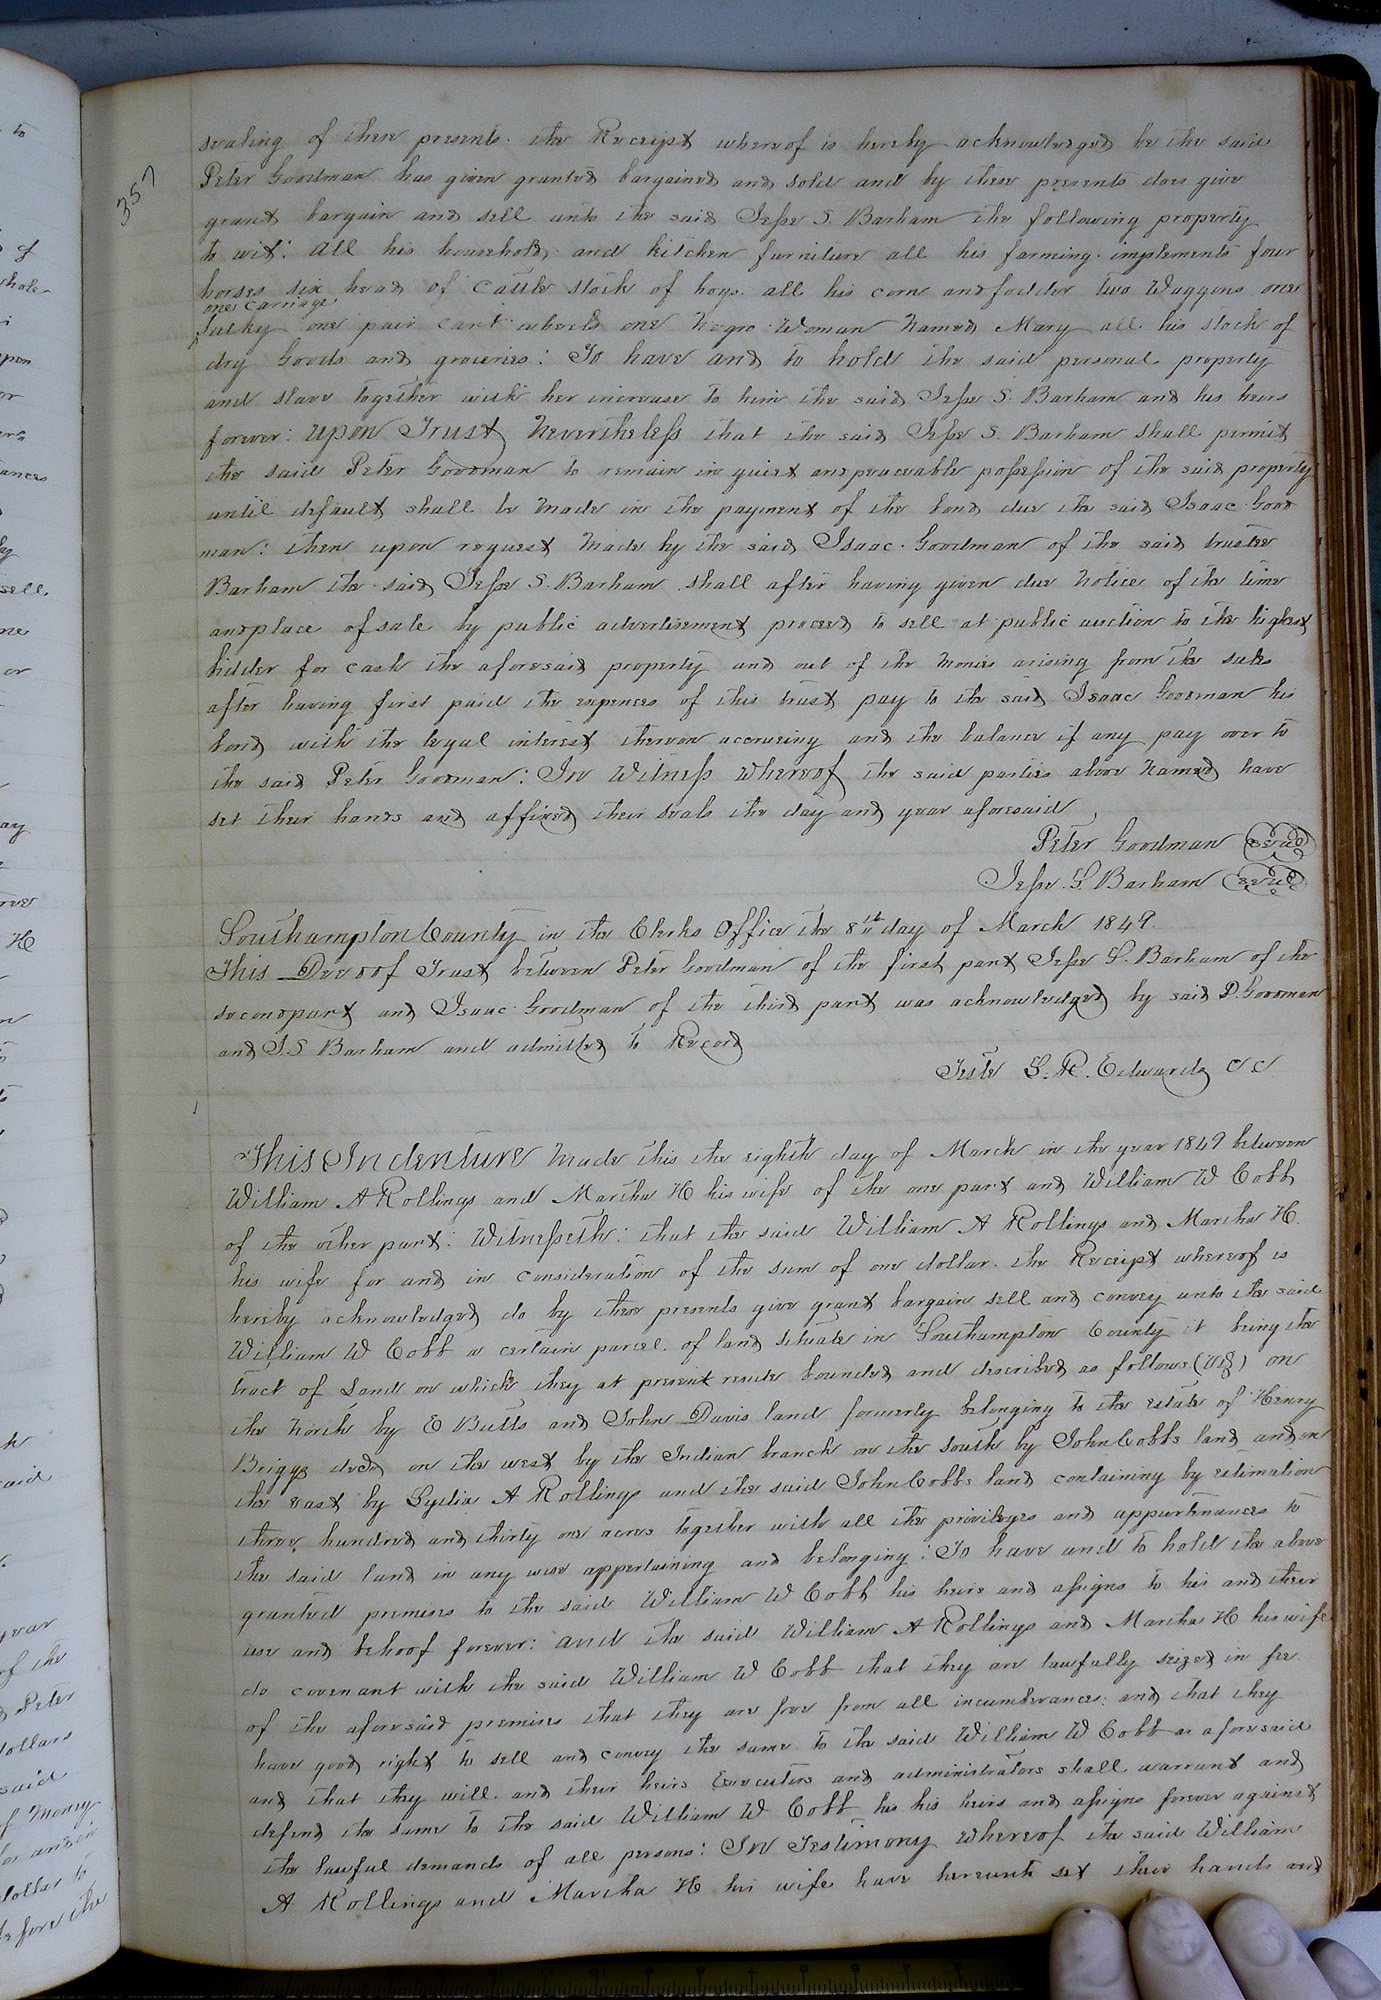 357
sealing of these presents. the Receipt whereof is hereby acknowledged he the said
Peter Goodman has given granted bargained and sold and by these presents does give
grant bargain and sell unto the said Jesse S. Barham the following property
to wit: All his household and kitchen furniture all his farming implements four
horses six head of cattle stock of hogs. all his corn and fodder two Waggons one
one carriage
sulky one pair cart wheels one Negro Woman Named Mary all his stock of
dry Goods and groceries: To have and to hold the said personal property
and slave together with her increase to him the said Jesse S. Barham and his heirs
forever: Upon Trust Nevertheless that the said Jesse S. Barham shall permit
the said Peter Goodman to remain in quiet and peaceable possession of the said property
until default shall be Made in the payment of the bond due the said Isaac Good
man: then upon request Made by the said Isaac Goodman of the said trustee
Barham the said Jesse S. Barham shall after having given due Notice of the time
and place of sale by public advertisement proceed to sell at public auction to the highest
bidder for cash the aforesaid property and out of the Monies arising from the sale
after having first paid the expences of this trust pay to the said Isaac Goodman his
bond with the legal interest thereon accrueing and the balance if any pay over to
the said Peter Goodman: In Witness Whereof the said parties above Named have
set their hands and affixed their seals the day and year aforesaid
Peter Goodman seal
Jesse S. Barham seal
Southampton County in the Clerks Office the 8th day of March 1849.
This Deed of Trust between Peter Goodman of the first part Jesse S. Barham of the
second part and Isaac Goodman of the third part was acknowledged by said P. Goodman
and J. S Barham and admitted to Record
Teste L. R. Edwards C C
This Indenture Made this the eighth day of March in the year 1849 between
William A Rollings and Martha H his wife of the one part and William W Cobb
of the other part: Witnesseth: that the said William A Rollings and Martha H.
his wife for and in consideration of the sum of one dollar. the Receipt whereof is
hereby acknowledged do by these presents give grant bargain sell and convey unto the said
William W Cobb a certain parcel of land situate in Southampton County it being the
tract of Land on which they at present reside bounded and described as follows (viz) on
the North by E Butts and John Davis land formerly belonging to the estate of Henry
Briggs decd on the west by the Indian branch on the south by John Cobbs land and on
the east by Lydia A Rollings and the said John Cobbs land containing by estimation
three hundred and thirty one acres together with all the privileges and appurtenances to
the said land in any wise appertaining and belonging: To have and to hold the above
granted premises to the said William W Cobb his heirs and assigns to his and their
use and behoof forever: and the said William A Rollings and Martha H his wife
do covenant with the said William W Cobb that they are lawfully seized in fee
of the aforesaid premises that they are free from all incumbrances: and that they
have good right to sell and convey the same to the said William W Cobb as aforesaid
and that they will and their heirs Executors and administrators shall warrant and
defend the same to the said William W Cobb his his heirs and assigns forever against
the lawful demands of all persons: In Testimony Whereof the said William
A Rollings and Martha H his wife have hereunto set their hands and